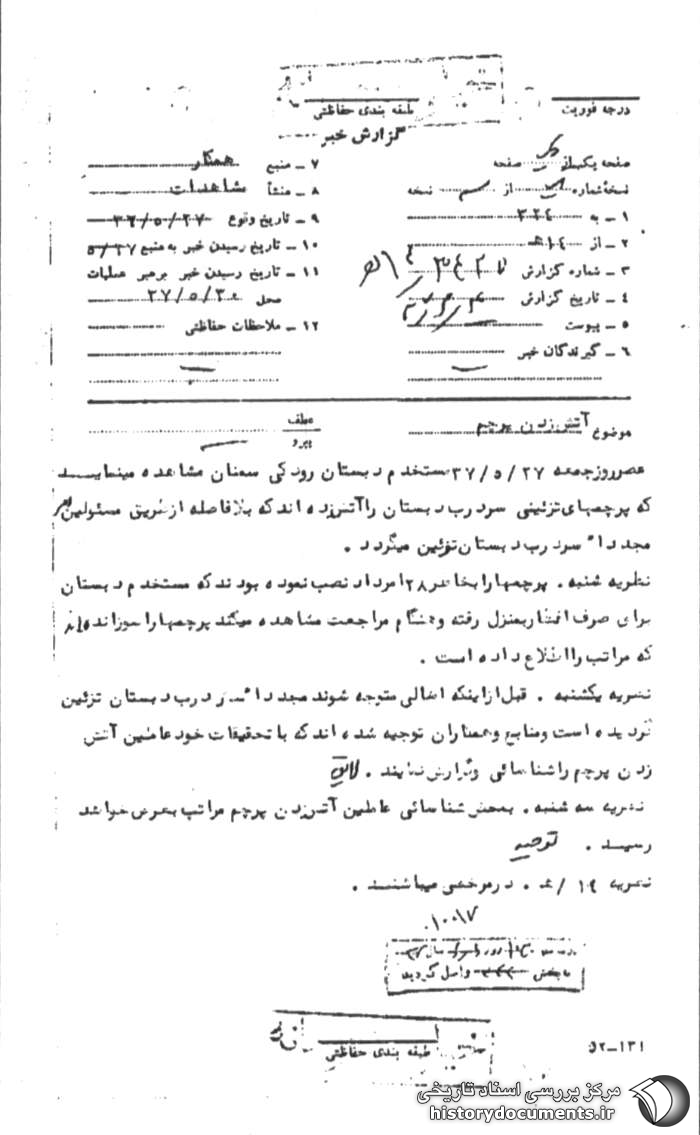 درجه فوریت
طبقه بندی حفاظتی
گزارش خبر
صفحه یکم از یک صفحه
نسخه شماره از نسخه
۱ ـ به ۳۲۴
۲ ـ از ۱۴ ه
۳ ـ شماره گزارش
۴ ـ تاریخ گزارش
۵ ـ پیوست
۶ ـ گیرندگان خبر
۷ ـ منبع همکار
۸ ـ منشأ مشاهدات
۹ ـ تاریخ وقوع ۳۷/۵/۲۷
۱۰ ـ تاریخ رسیدن خبر به منبع ۵/۲۷
۱۱ ـ تاریخ رسیدن خبر برهبر عملیات
محل ۳۷/۵/۳۰
۱۲ ـ ملاحظات حفاظتی
موضوع آتش زدن پرچم
عطف
پیرو
عصر روز جمعه ۳۷/۵/۲۷ مستخدم دبستان رودکی سمنان مشاهده مینماید
که پرچمهای تزئینی سردرب دبستان را آتش زده اند که بلافاصله از طریق مسئولین امر
مجددا" سردرب دبستان تزئین میگردد .
نظریه شنبه . پرچمها را بخاطر ۲۸ امرداد نصب نموده بودند که مستخدم دبستان
برای صرف افطار بمنزل رفته و هنگام مراجعت مشاهده میکند پرچمها را سوزانده اند
که مراتب را اطلاع داده است .
نظریه یکشنبه . قبل از اینکه اهالی متوجه شوند مجددا" سردرب دبستان تزئین
گردیده است و منابع و همکاران توجیه شده اند که با تحقیقات خود عاملین آتش
زدن پرچم را شناسائی و گزارش نمایند . لایق
نظریه سه شنبه . بمحض شناسائی عاملین آتش زدن پرچم مراتب بعرض خواهد
رسید . توحید
نظریه ۱۴/ه . در مرخصی میباشند .
۱۰۰۱۷
بخش واصل گردید
طبقه بندی حفاظتی
۵۲-۱۳۱
مرکز بررسی اسناد تاریخی
historydocuments.ir